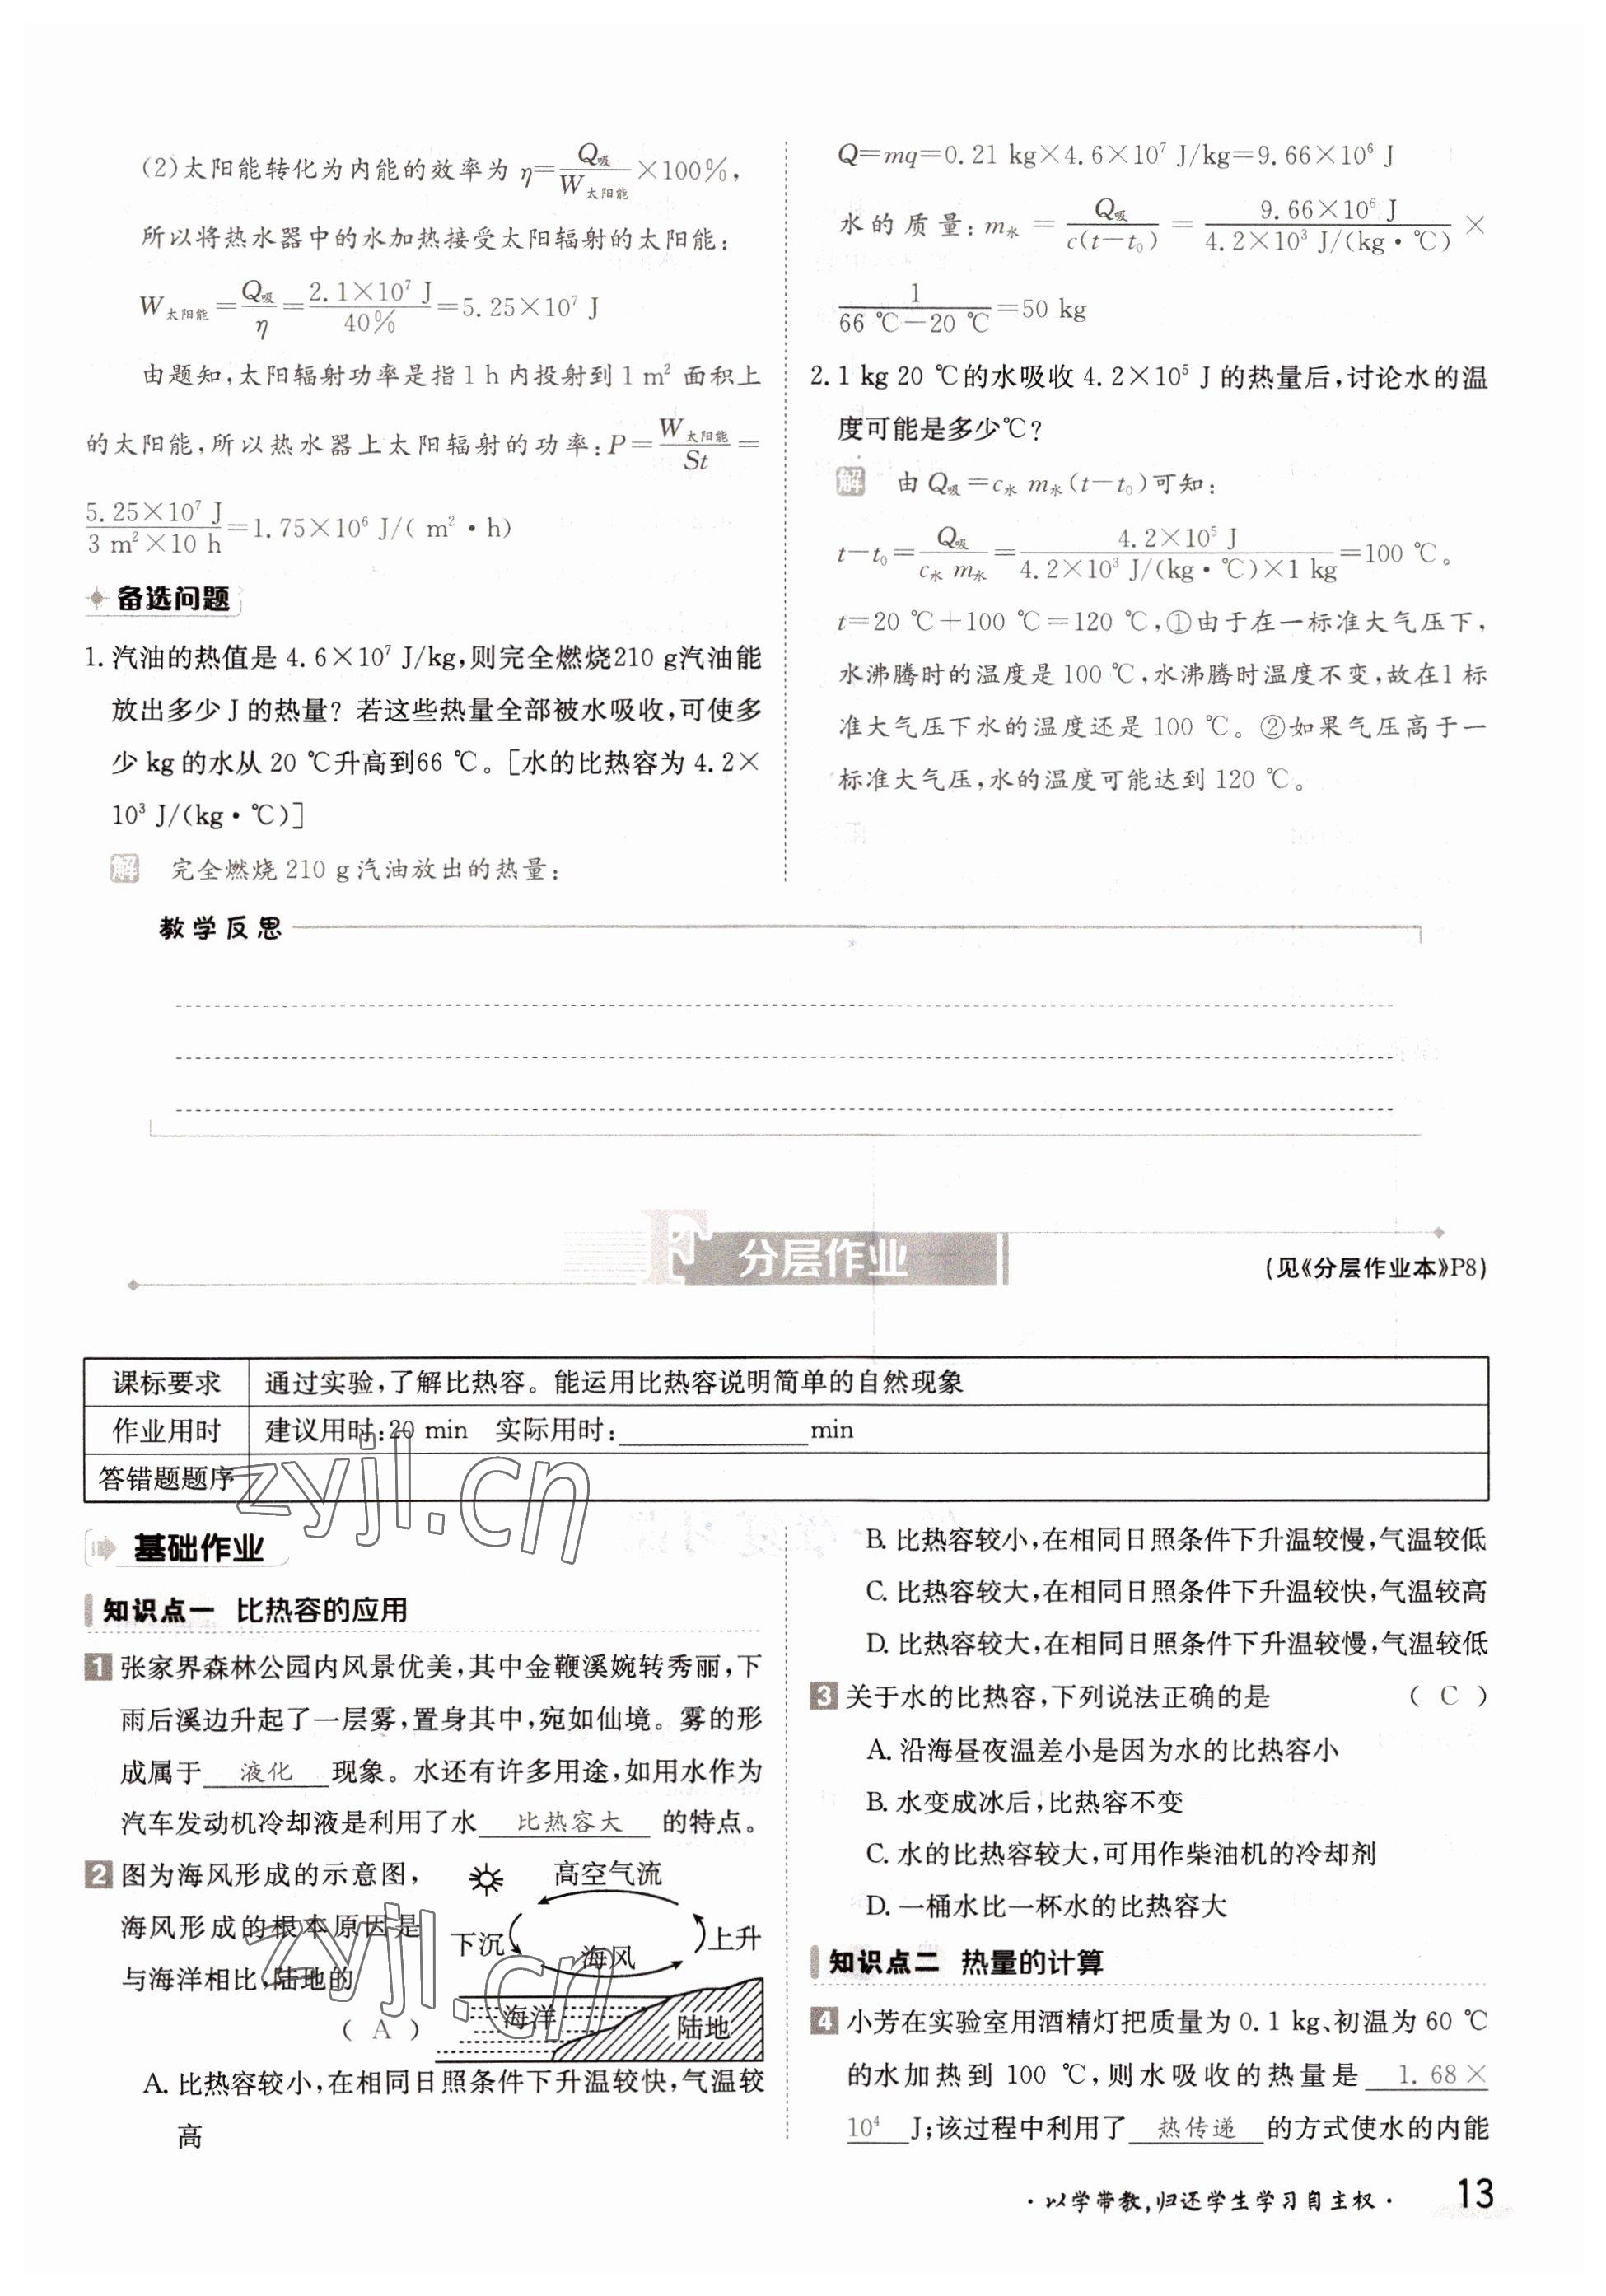 (2)太阳能转化为内能的效率为 η=Q吸/W太阳能×100%,
所以将热水器中的水加热接受太阳辐射的太阳能:
W太阳能=Q吸/η=2.1×10⁷ J/40%=5.25×10⁷ J
由题知,太阳辐射功率是指1 h内投射到1 m² 面积上
的太阳能,所以热水器上太阳辐射的功率:P=W太阳能/St=
5.25×10⁷ J/3 m²×10 h=1.75×10⁶ J/( m²·h)
备选问题
1. 汽油的热值是 4.6×10⁷ J/kg,则完全燃烧210 g汽油能
放出多少 J 的热量? 若这些热量全部被水吸收,可使多
少 kg 的水从 20 ℃升高到66 ℃。[水的比热容为 4.2×
10³ J/(kg·℃)]
解 完全燃烧 210 g 汽油放出的热量:
Q=mq=0.21 kg×4.6×10⁷ J/kg=9.66×10⁶ J
水的质量:m水=Q吸/c(t-t₀)=9.66×10⁶ J/4.2×10³ J/(kg·℃)×
1/66 ℃-20 ℃=50 kg
2. 1 kg 20 ℃的水吸收 4.2×10⁵ J 的热量后,讨论水的温
度可能是多少℃?
解 由 Q吸=c水 m水(t-t₀)可知:
t-t₀=Q吸/c水 m水=4.2×10⁵ J/4.2×10³ J/(kg·℃)×1 kg=100 ℃。
t=20 ℃+100 ℃=120 ℃,①由于在一标准大气压下,
水沸腾时的温度是 100 ℃,水沸腾时温度不变,故在1 标
准大气压下水的温度还是 100 ℃。②如果气压高于一
标准大气压,水的温度可能达到 120 ℃。
教学反思
F 分层作业
(见《分层作业本》P8)
课标要求 通过实验,了解比热容。能运用比热容说明简单的自然现象
作业用时 建议用时:20 min 实际用时:______min
答错题题序
zyjl.cn
基础作业
知识点一 比热容的应用
1 张家界森林公园内风景优美,其中金鞭溪婉转秀丽,下
雨后溪边升起了一层雾,置身其中,宛如仙境。雾的形
成属于 液化 现象。水还有许多用途,如用水作为
汽车发动机冷却液是利用了水 比热容大 的特点。
2 图为海风形成的示意图,
海风形成的根本原因是
与海洋相比,陆地的
( A )
高空气流
下沉
上升
海风
海洋
陆地
zyjl.cn
A. 比热容较小,在相同日照条件下升温较快,气温较
高
B. 比热容较小,在相同日照条件下升温较慢,气温较低
C. 比热容较大,在相同日照条件下升温较快,气温较高
D. 比热容较大,在相同日照条件下升温较慢,气温较低
3 关于水的比热容,下列说法正确的是 ( C )
A. 沿海昼夜温差小是因为水的比热容小
B. 水变成冰后,比热容不变
C. 水的比热容较大,可用作柴油机的冷却剂
D. 一桶水比一杯水的比热容大
知识点二 热量的计算
4 小芳在实验室用酒精灯把质量为 0.1 kg、初温为 60 ℃
的水加热到 100 ℃,则水吸收的热量是 1.68×
10⁴ J;该过程中利用了 热传递 的方式使水的内能
·以学带教,归还学生学习自主权·
13